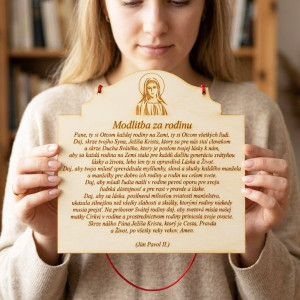 Modlitba za rodinu
Pane, ty si Otcom každej rodiny na Zemi, ty si Otcom všetkých ľudí.
Daj, skrze tvojho Syna, Ježiša Krista, ktorý sa pre nás stal človekom
a skrze Ducha Svätého, ktorý je poslom tvojej lásky k nám,
aby sa každá rodina na Zemi stala pre každú ďalšiu generáciu svätyňou
lásky a života, lebo len ty si opravdivá Láska a Život.
Daj, aby tvoja milosť sprevádzala myšlienky, slová a skutky každého manžela
a manželky pre dobro ich rodiny a rodín na celom svete.
Daj, aby mladí ľudia našli v rodine pevnú oporu pre svoju
ľudskú dôstojnosť a pre rast v pravde a láske.
Daj, aby sa láska, posilnená milosťou sviatosti manželstva,
ukázala silnejšou než všetky slabosti a skúšky, ktorými rodiny niekedy
musia prejsť. Na príhovor Svätej rodiny daj, aby svetové misie našej
matky Cirkvi v rodine a prostredníctvom rodiny prinášali svoje ovocie.
Skrze nášho Pána Ježiša Krista, ktorý je Cesta, Pravda
a Život, po všetky veky vekov. Amen.
(Ján Pavol II.)